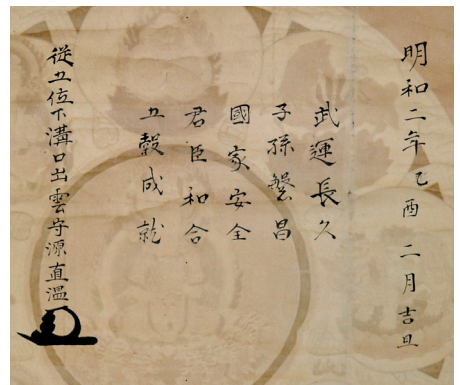 明和二年乙酉二月吉旦
武運長久
子孫繁昌
國家安全
君臣和合
五穀成就
從五位下溝口出雲守源直溫